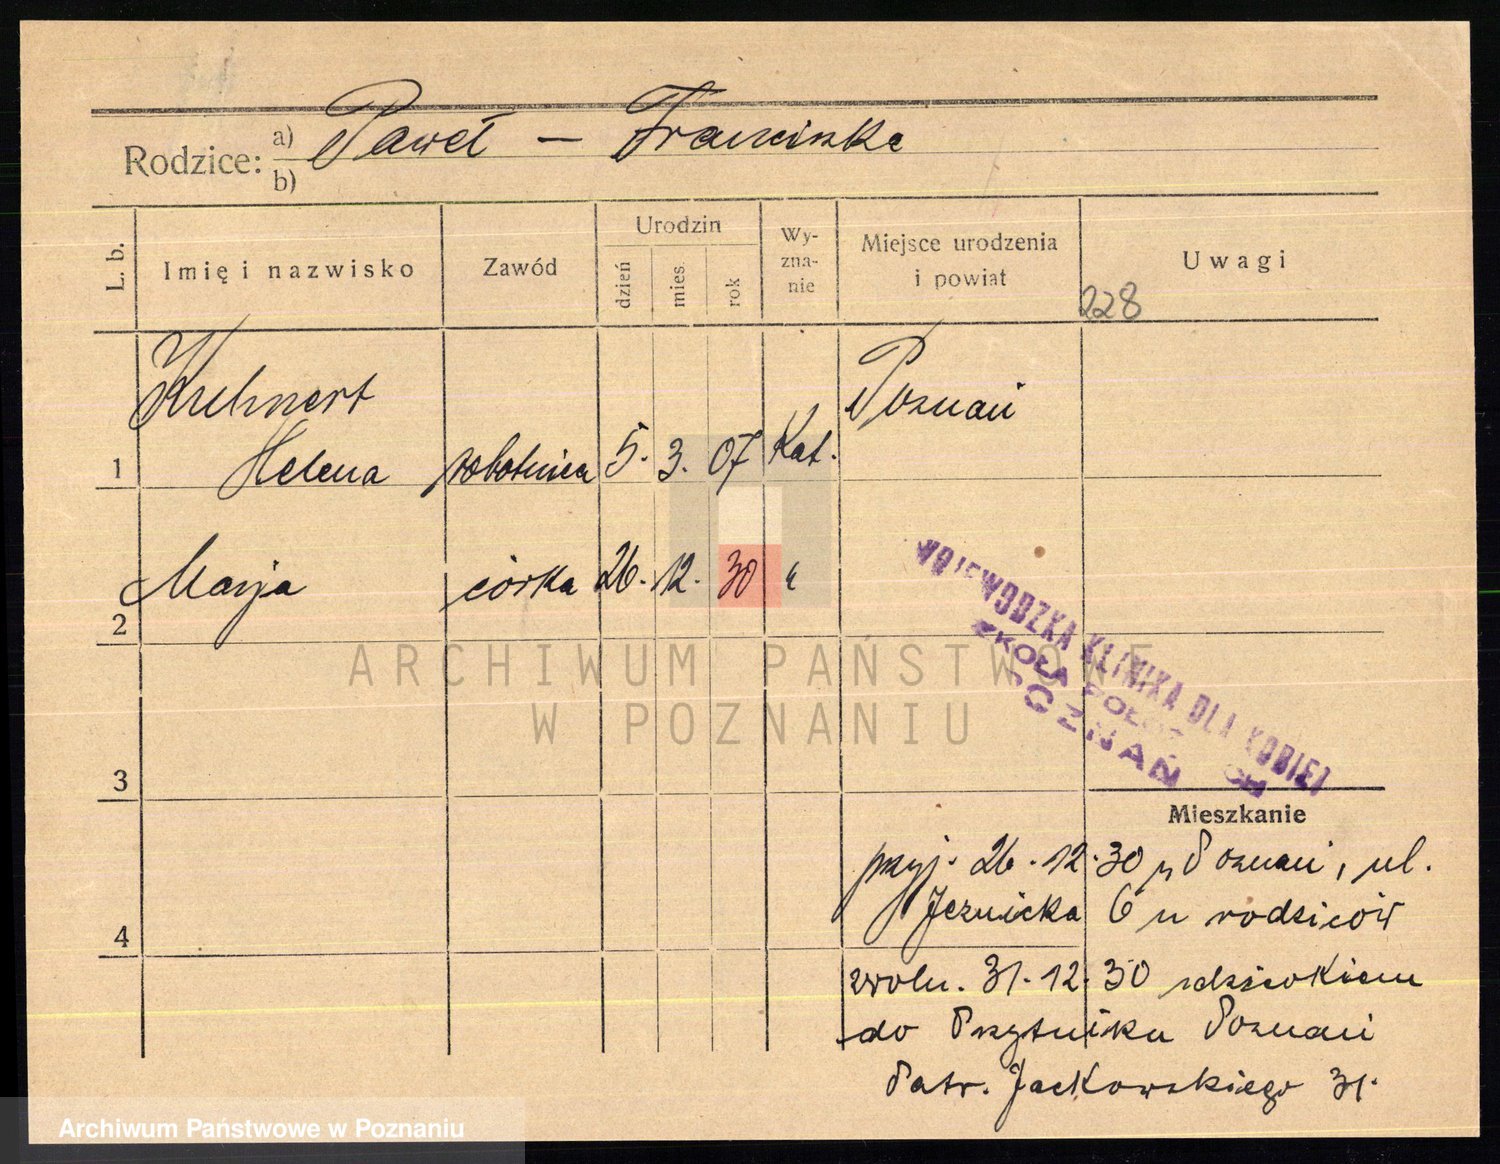 Rodzice: a) Paweł — Franciszka
b)
L. b.
Imię i nazwisko
Zawód
Urodzin
dzień
mies.
rok
Wy-
zna-
nie
Miejsce urodzenia
i powiat
Uwagi
228
Kuhnert
Poznań
1 Helena robotnica 5. 3. 07 Kat.
2 Marja córka 26. 12. 30 "
WOJEWÓDZKA KLINIKA DLA KOBIET
SZKOŁA POŁOŻ CH
POZNAŃ
ARCHIWUM PAŃSTWOWE
W POZNANIU
3
Mieszkanie
przyj. 26.12.30 z Poznań, ul.
Jeżnicka 6 u rodziców
4
zwoln. 31.12.30 z dzieckiem
do Przytułku Poznań
Patr. Jackowskiego 31.
Archiwum Państwowe w Poznaniu